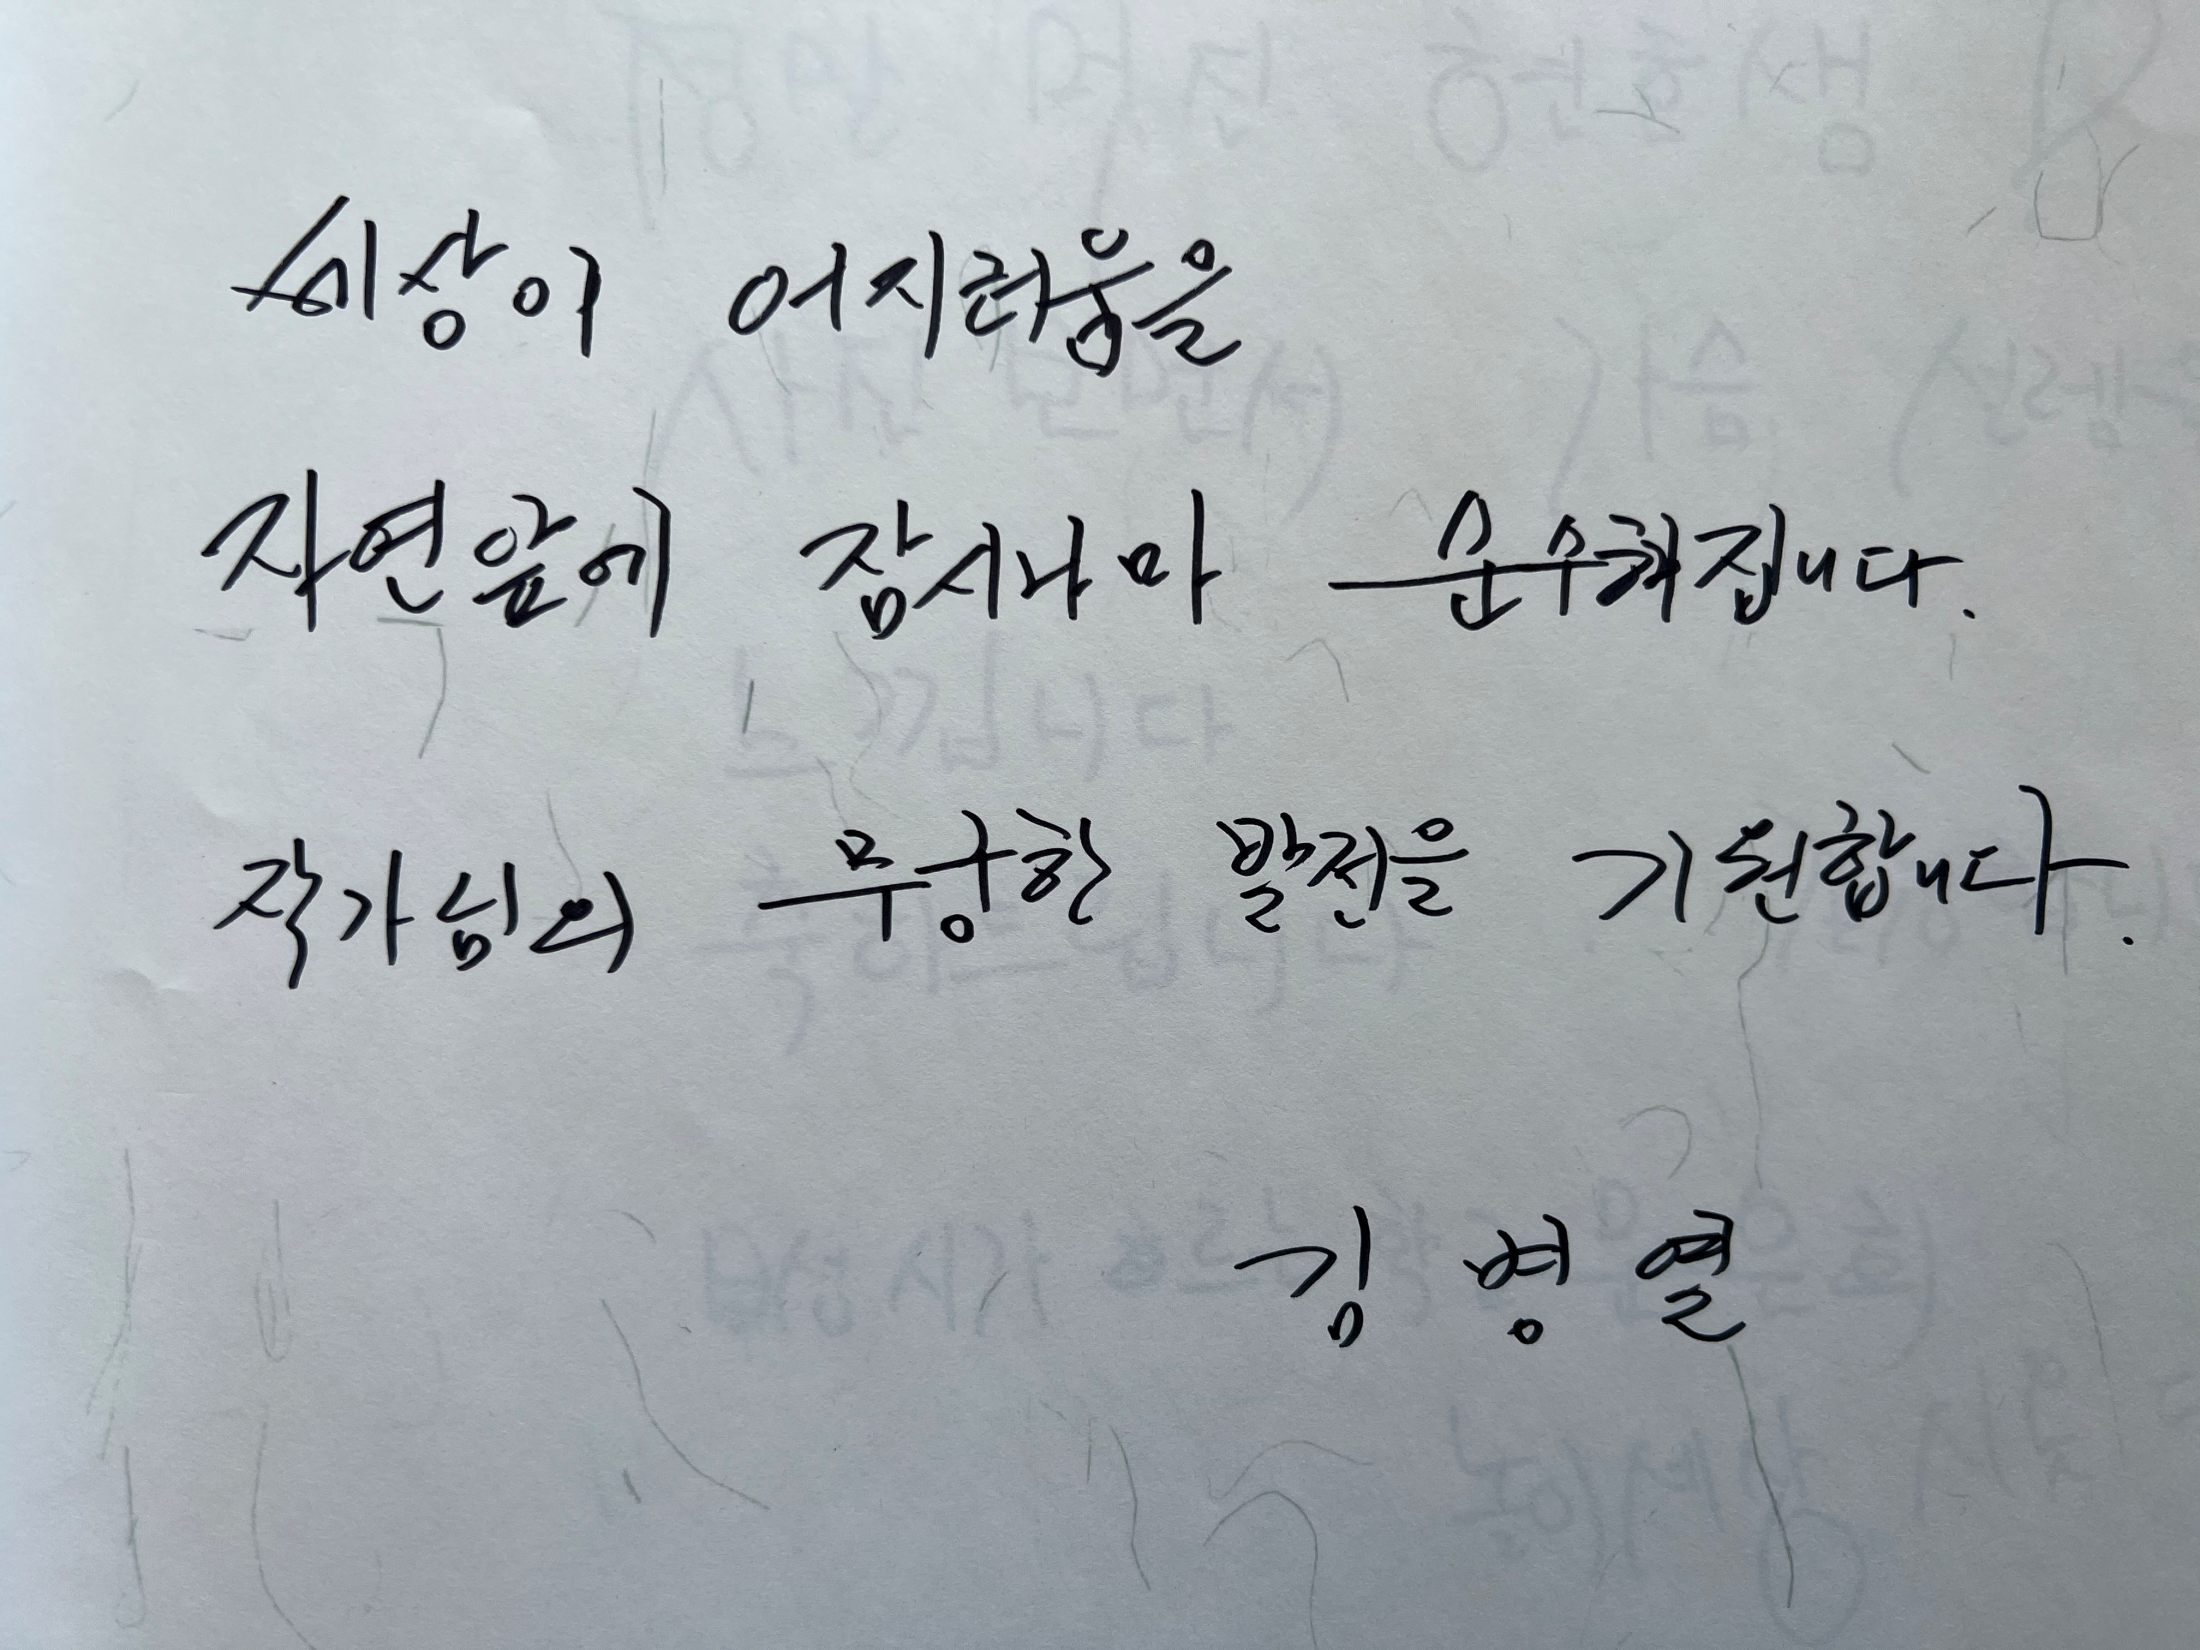 세상이 어지러움을
자연앞에 잠시나마 순수해집니다.
작가님의 무궁한 발전을 기원합니다.
김 병 열